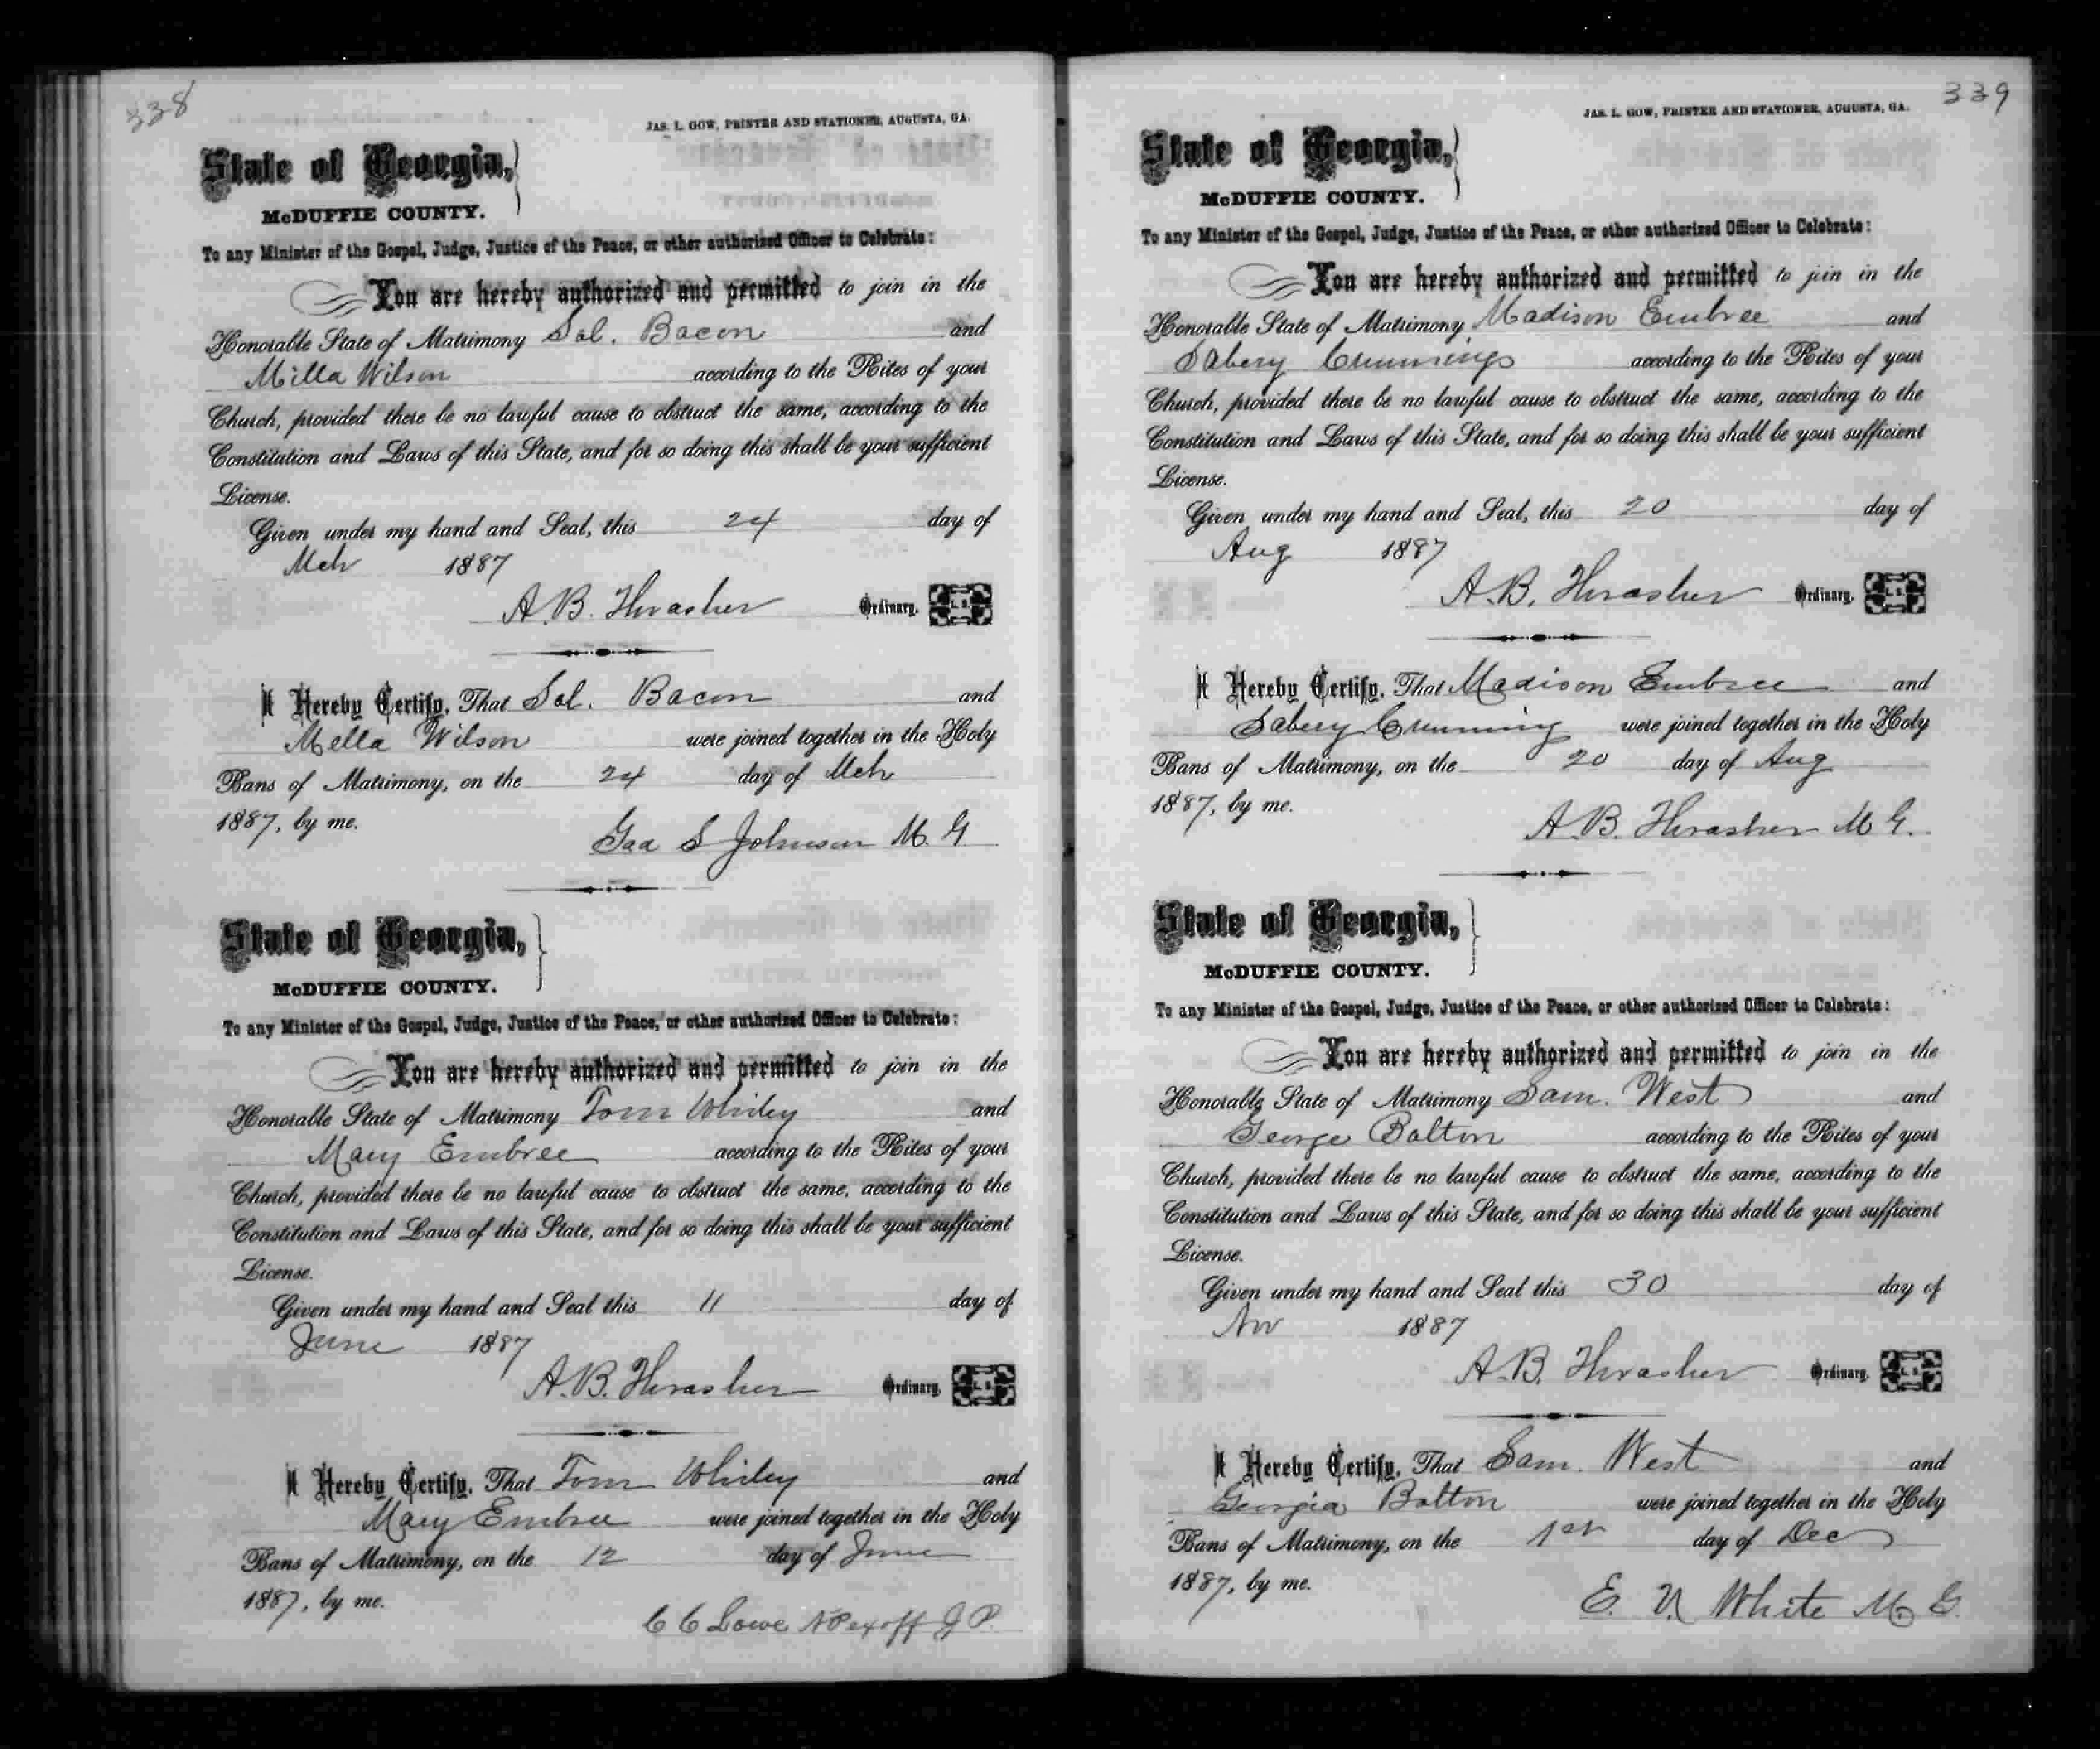 338
JAS. L. GOW, PRINTER AND STATIONER, AUGUSTA, GA.
State of Georgia,
McDUFFIE COUNTY.
To any Minister of the Gospel, Judge, Justice of the Peace, or other authorized Officer to Celebrate:
You are hereby authorized and permitted to join in the
Honorable State of Matrimony Sol. Bacon and
Milla Wilson according to the Rites of your
Church, provided there be no lawful cause to obstruct the same, according to the
Constitution and Laws of this State, and for so doing this shall be your sufficient
License.
Given under my hand and Seal, this 24 day of
Mch 1887
A.B. Thrasher Ordinary. L.S.
I Hereby Certify, That Sol. Bacon and
Mella Wilson were joined together in the Holy
Bans of Matrimony, on the 24 day of Mch
1887, by me.
S Johnson M. G.
State of Georgia,
McDUFFIE COUNTY.
To any Minister of the Gospel, Judge, Justice of the Peace, or other authorized Officer to Celebrate:
You are hereby authorized and permitted to join in the
Honorable State of Matrimony Tom Whirley and
Mary Embree according to the Rites of your
Church, provided there be no lawful cause to obstruct the same, according to the
Constitution and Laws of this State, and for so doing this shall be your sufficient
License.
Given under my hand and Seal this 11 day of
June 1887
A.B. Thrasher Ordinary. L.S.
I Hereby Certify, That Tom Whirley and
Mary Embree were joined together in the Holy
Bans of Matrimony, on the 12 day of June
1887, by me.
C C Lowe N P exoff J P.
339
JAS. L. GOW, PRINTER AND STATIONER, AUGUSTA, GA.
State of Georgia,
McDUFFIE COUNTY.
To any Minister of the Gospel, Judge, Justice of the Peace, or other authorized Officer to Celebrate:
You are hereby authorized and permitted to join in the
Honorable State of Matrimony Madison Embree and
Sabery Crummings according to the Rites of your
Church, provided there be no lawful cause to obstruct the same, according to the
Constitution and Laws of this State, and for so doing this shall be your sufficient
License.
Given under my hand and Seal, this 20 day of
Aug 1887
A.B. Thrasher Ordinary. L.S.
I Hereby Certify, That Madison Embree and
Sabery Crumming were joined together in the Holy
Bans of Matrimony, on the 20 day of Aug
1887, by me.
A.B. Thrasher M G.
State of Georgia,
McDUFFIE COUNTY.
To any Minister of the Gospel, Judge, Justice of the Peace, or other authorized Officer to Celebrate:
You are hereby authorized and permitted to join in the
Honorable State of Matrimony Sam. West and
George Bolton according to the Rites of your
Church, provided there be no lawful cause to obstruct the same, according to the
Constitution and Laws of this State, and for so doing this shall be your sufficient
License.
Given under my hand and Seal this 30 day of
Nov 1887
A.B. Thrasher Ordinary. L.S.
I Hereby Certify, That Sam. West and
Georgia Bolton were joined together in the Holy
Bans of Matrimony, on the 1st day of Dec
1887, by me.
E. V. White M. G.